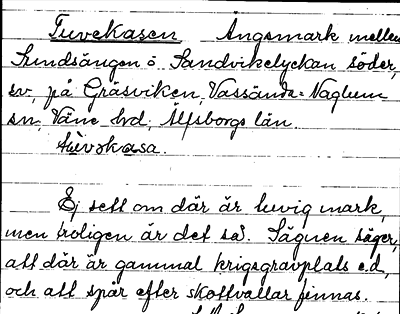 Tuvekasen Ängsmark mellan
Sundsängen o Sandvikelyckan söder,
sv, på Gräsviken, Vassända-Naglum
sn, Väne hd, Älfsborgs län.
tùvəkasa.
Ej sett om där är tuvig mark,
men troligen är det så. Sägnen säger,
att där är gammal krigsgravplats e.d,
och att spår efter skottvallar finnas.